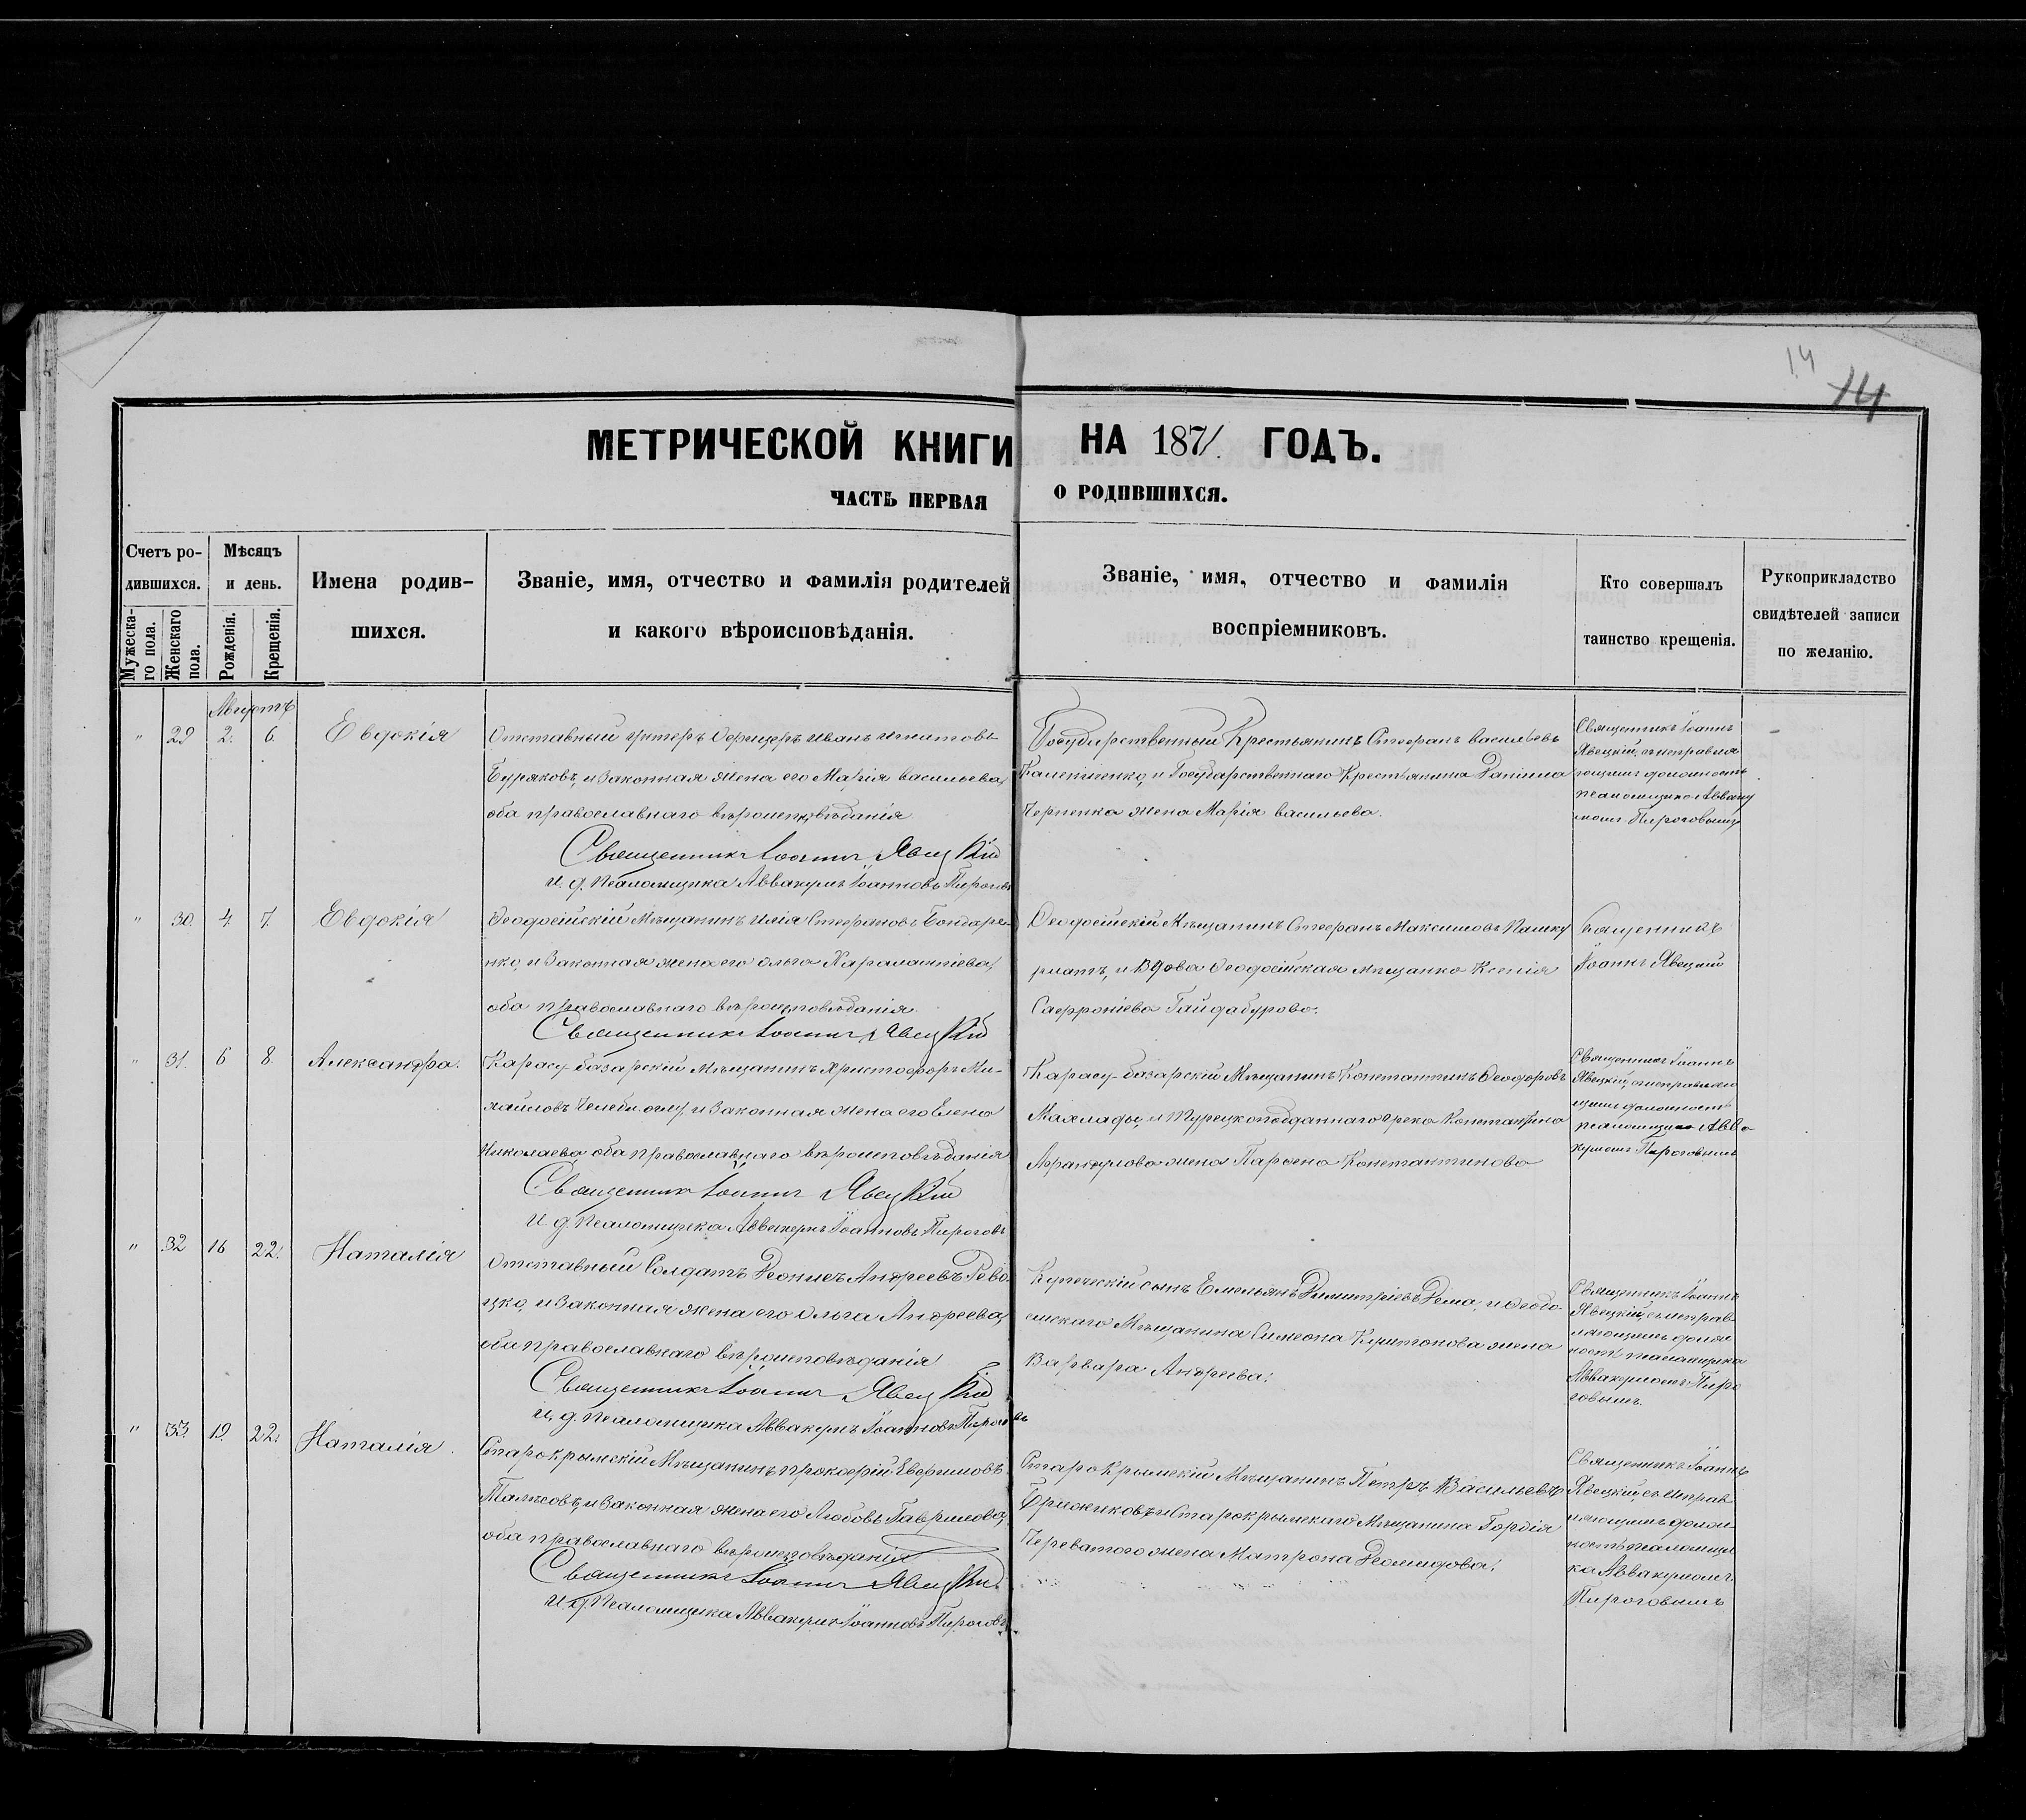 14
14
МЕТРИЧЕСКОЙ КНИГИ НА 1871 ГОДЪ.
ЧАСТЬ ПЕРВАЯ О РОДИВШИХСЯ.
Счетъ ро-
дившихся.
Мужеска-
го пола.
Женскаго
пола.
Мѣсяцъ
и день.
Рожденія.
Крещенія.
Имена родив-
шихся.
Званіе, имя, отчество и фамилія родителей
и какого вѣроисповѣданія.
Званіе, имя, отчество и фамилія
воспріемниковъ.
Кто совершалъ
таинство крещенія.
Рукоприкладство
свидѣтелей записи
по желанію.
Августъ
" 29 2. 6. Евдокія
Отставный унтеръ Офицеръ Иванъ Игнатовъ
Буряковъ, и Законная Жена его Марія Васильева,
оба православнаго вѣроисповѣданія
Священникъ Іоаннъ Явецкій
И. д. Псаломщика Аввакумъ Іоанновъ Пироговъ
Государственный Крестьянинъ Стефанъ Васильевъ
и Государственнаго Крестьянина Даніила
Черненка жена Марія Васильева.
Священникъ Іоаннъ
Явецкій, съ исправля
ющимъ должность
псаломщика Авваку
момъ Пироговымъ
" 30. 4. 7. Евдокія
Ѳеодосійскій Мѣщанинъ Илія Стефановъ Бондаре-
нко, и Законная жена его Ольга Харалампіева,
оба православнаго вѣроисповѣданія.
Священникъ Іоаннъ Явецкій
Ѳеодосійскій Мѣщанинъ Стефанъ Максимовъ
и Вдова Ѳеодосійская мѣщанка Ксенія
Сафроніева Гайдабурова.
Священникъ
Іоаннъ Явецкій
" 31. 6 8 Александра.
Карасу-базарскій Мѣщанинъ Христофоръ Ми-
хайловъ Челеби-оглу, и Законная жена его Елена
Николаева, оба православнаго вѣроисповѣданія
Священникъ Іоаннъ Явецкій
И. д. Псаломщика Аввакумъ Іоанновъ Пироговъ
Карасу-базарскій Мѣщанинъ Константинъ Ѳеодоровъ
и Турецкоподданнаго грека Константина
жена Константинова
Священникъ Іоаннъ
Явецкій, съ исправляю
щимъ должность
псаломщика Авва
кумомъ Пироговымъ
" 32 16 22. Наталія
Отставный Солдатъ Леонисъ Андреевъ Рево-
цко, и Законная жена его Ольга Андреева,
оба православнаго вѣроисповѣданія
Священникъ Іоаннъ Явецкій
И. д. Псаломщика Аввакумъ Іоанновъ Пироговъ
Купеческій сынъ Емельянъ Димитріевъ и Ѳеодо-
сійскаго Мѣщанина Симеона жена
Варвара Андреева.
Священникъ Іоаннъ
Явецкій, съ исправ-
ляющимъ долж
ность псаломщика
Аввакумомъ Пиро
говымъ.
" 33. 19. 22. Наталія.
Старокрымскій Мѣщанинъ Прокофій Евфимовъ
и Законная жена его Любовь Гаврилова,
оба православнаго вѣроисповѣданія
Священникъ Іоаннъ Явецкій.
И. д. Псаломщика Аввакумъ Іоанновъ Пироговъ.
СтароКрымскій Мѣщанинъ Петръ Васильевъ
Брижиковъ и Старокрымскаго Мѣщанина Гордія
Перерватого жена Матрона Діомидова.
Священникъ Іоаннъ
Явецкій, съ исправ-
ляющимъ долж-
ность псаломщи
ка Аввакумомъ
Пироговымъ